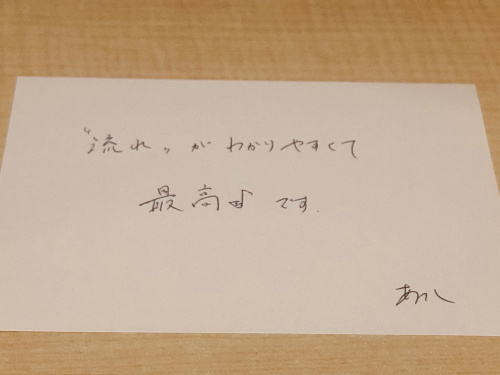 “流れ”がわかりやすくて
最高です.